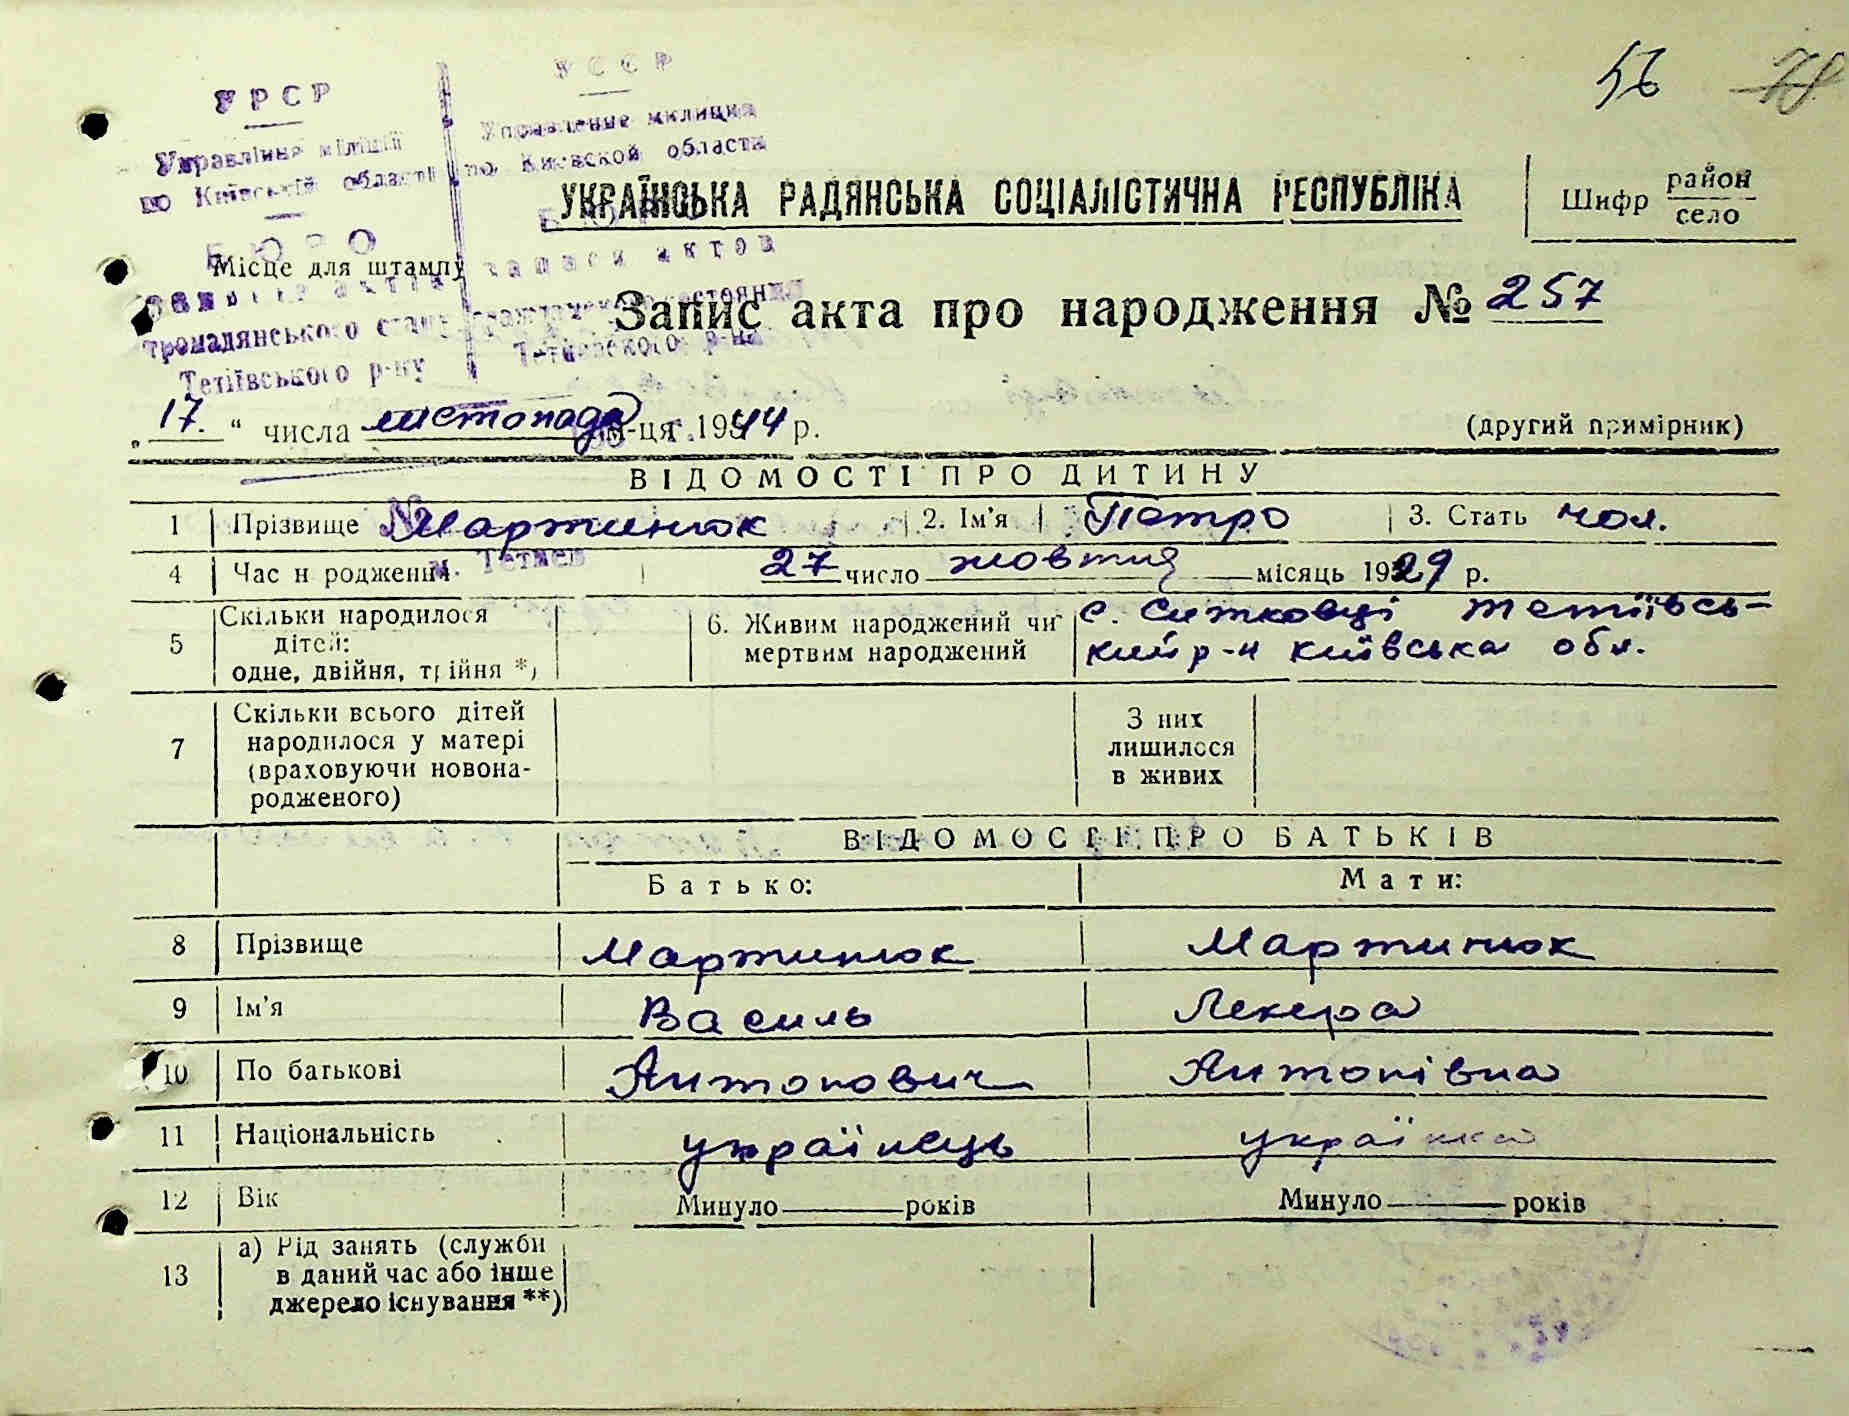 56 78
УРСР
УССР
Управління міліції
Управление милиции
по Київській області
по Киевской области
УКРАЇНСЬКА РАДЯНСЬКА СОЦІАЛІСТИЧНА РЕСПУБЛІКА
Шифр район село
БЮРО
БЮРО
Місце для штампу
записів актів
записи актов
громадянського стану
гражданского состояния
Тетіївського р-ну
Тетиевского р-на
Запис акта про народження № 257
„17." числа листопада м-ця 1944 р.
(другий примірник)
ВІДОМОСТІ ПРО ДИТИНУ
1 Прізвище Мартинюк 2. Ім'я Петро 3. Стать чол.
№
м. Тетиев
4 Час н родження 27 число жовтня місяць 1929 р.
5 Скільки народилося
дітей:
одне, двійня, трійня *)
6. Живим народжений чи
мертвим народжений
с. Ситковці Тетіївсь-
кий р-н київська обл.
7 Скільки всього дітей
народилося у матері
(враховуючи новона-
родженого)
З них
лишилося
в живих
ВІДОМОСТІ ПРО БАТЬКІВ
Батько: Мати:
8 Прізвище Мартинюк Мартинюк
9 Ім'я Василь
10 По батькові Антонович Антонівна
11 Національність українець українка
12 Вік Минуло років Минуло років
13 а) Рід занять (служби
в даний час або інше
джерело існування **)